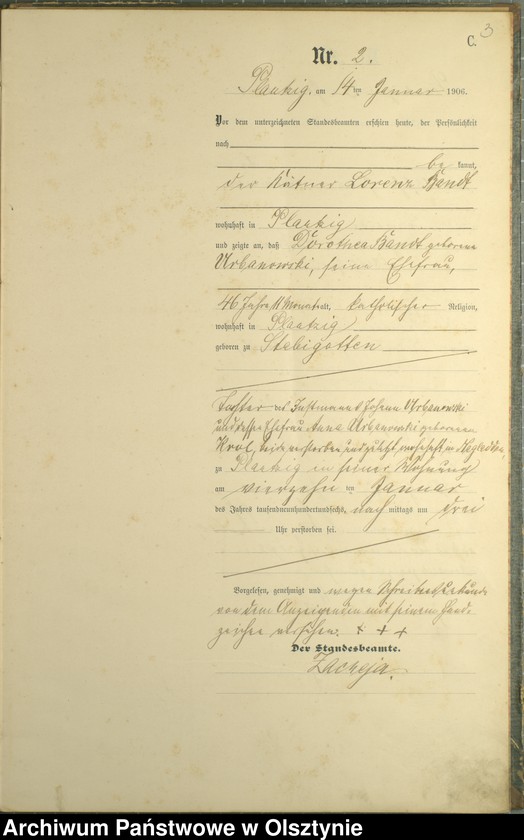 C. 3
Nr. 2.
Plautzig, am 14ten Januar 1906.
Vor dem unterzeichneten Standesbeamten erschien heute, der Persönlichkeit
nach
be kannt,
der Kätner Lorenz Bandt
wohnhaft in Plautzig
und zeigte an, daß Dorothea Bandt geborene
Urbanowski, seine Ehefrau,
46 Jahre 11 Monat alt, katholischer Religion,
wohnhaft in Plautzig
geboren zu Stabigotten
Tochter des Instmanns Johann Urbanowski
und dessen Ehefrau Anna Urbanowski geborenen
Krol, beide verstorben und zuletzt wohnhaft in
zu Plautzig in seiner Wohnung
am vierzehn ten Januar
des Jahres tausendneunhundertundsechs, nach mittags um drei
Uhr verstorben sei.
Vorgelesen, genehmigt und wegen Schreibensunkunde
von dem Anzeigenden mit seinem Hand-
zeichen versehen. + + +
Der Standesbeamte.
Zacheja.
Archiwum Państwowe w Olsztynie